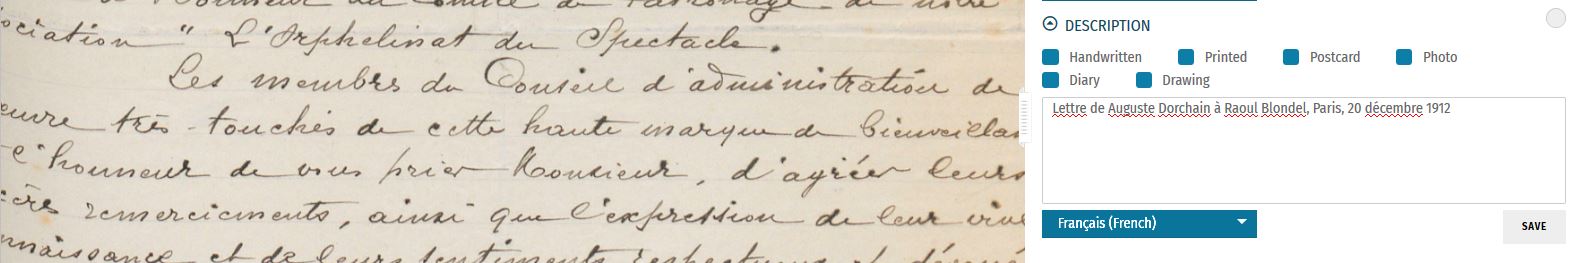 l'honneur du Comité de Patronage de notre
ociation " L'Orphelinat du Spectacle.
Les membres du Conseil d'administration de
euvre très-touchés de cette haute marque de bienveillan
l'honneur de vous prier Monsieur, d'agréer leurs
cère remerciements, ainsi que l'expression de leur vive
nnaissance et de leurs sentiments respectueux et dévoué
DESCRIPTION
Handwritten Printed Postcard Photo
Diary Drawing
Lettre de Auguste Dorchain à Raoul Blondel, Paris, 20 décembre 1912
Français (French)
SAVE